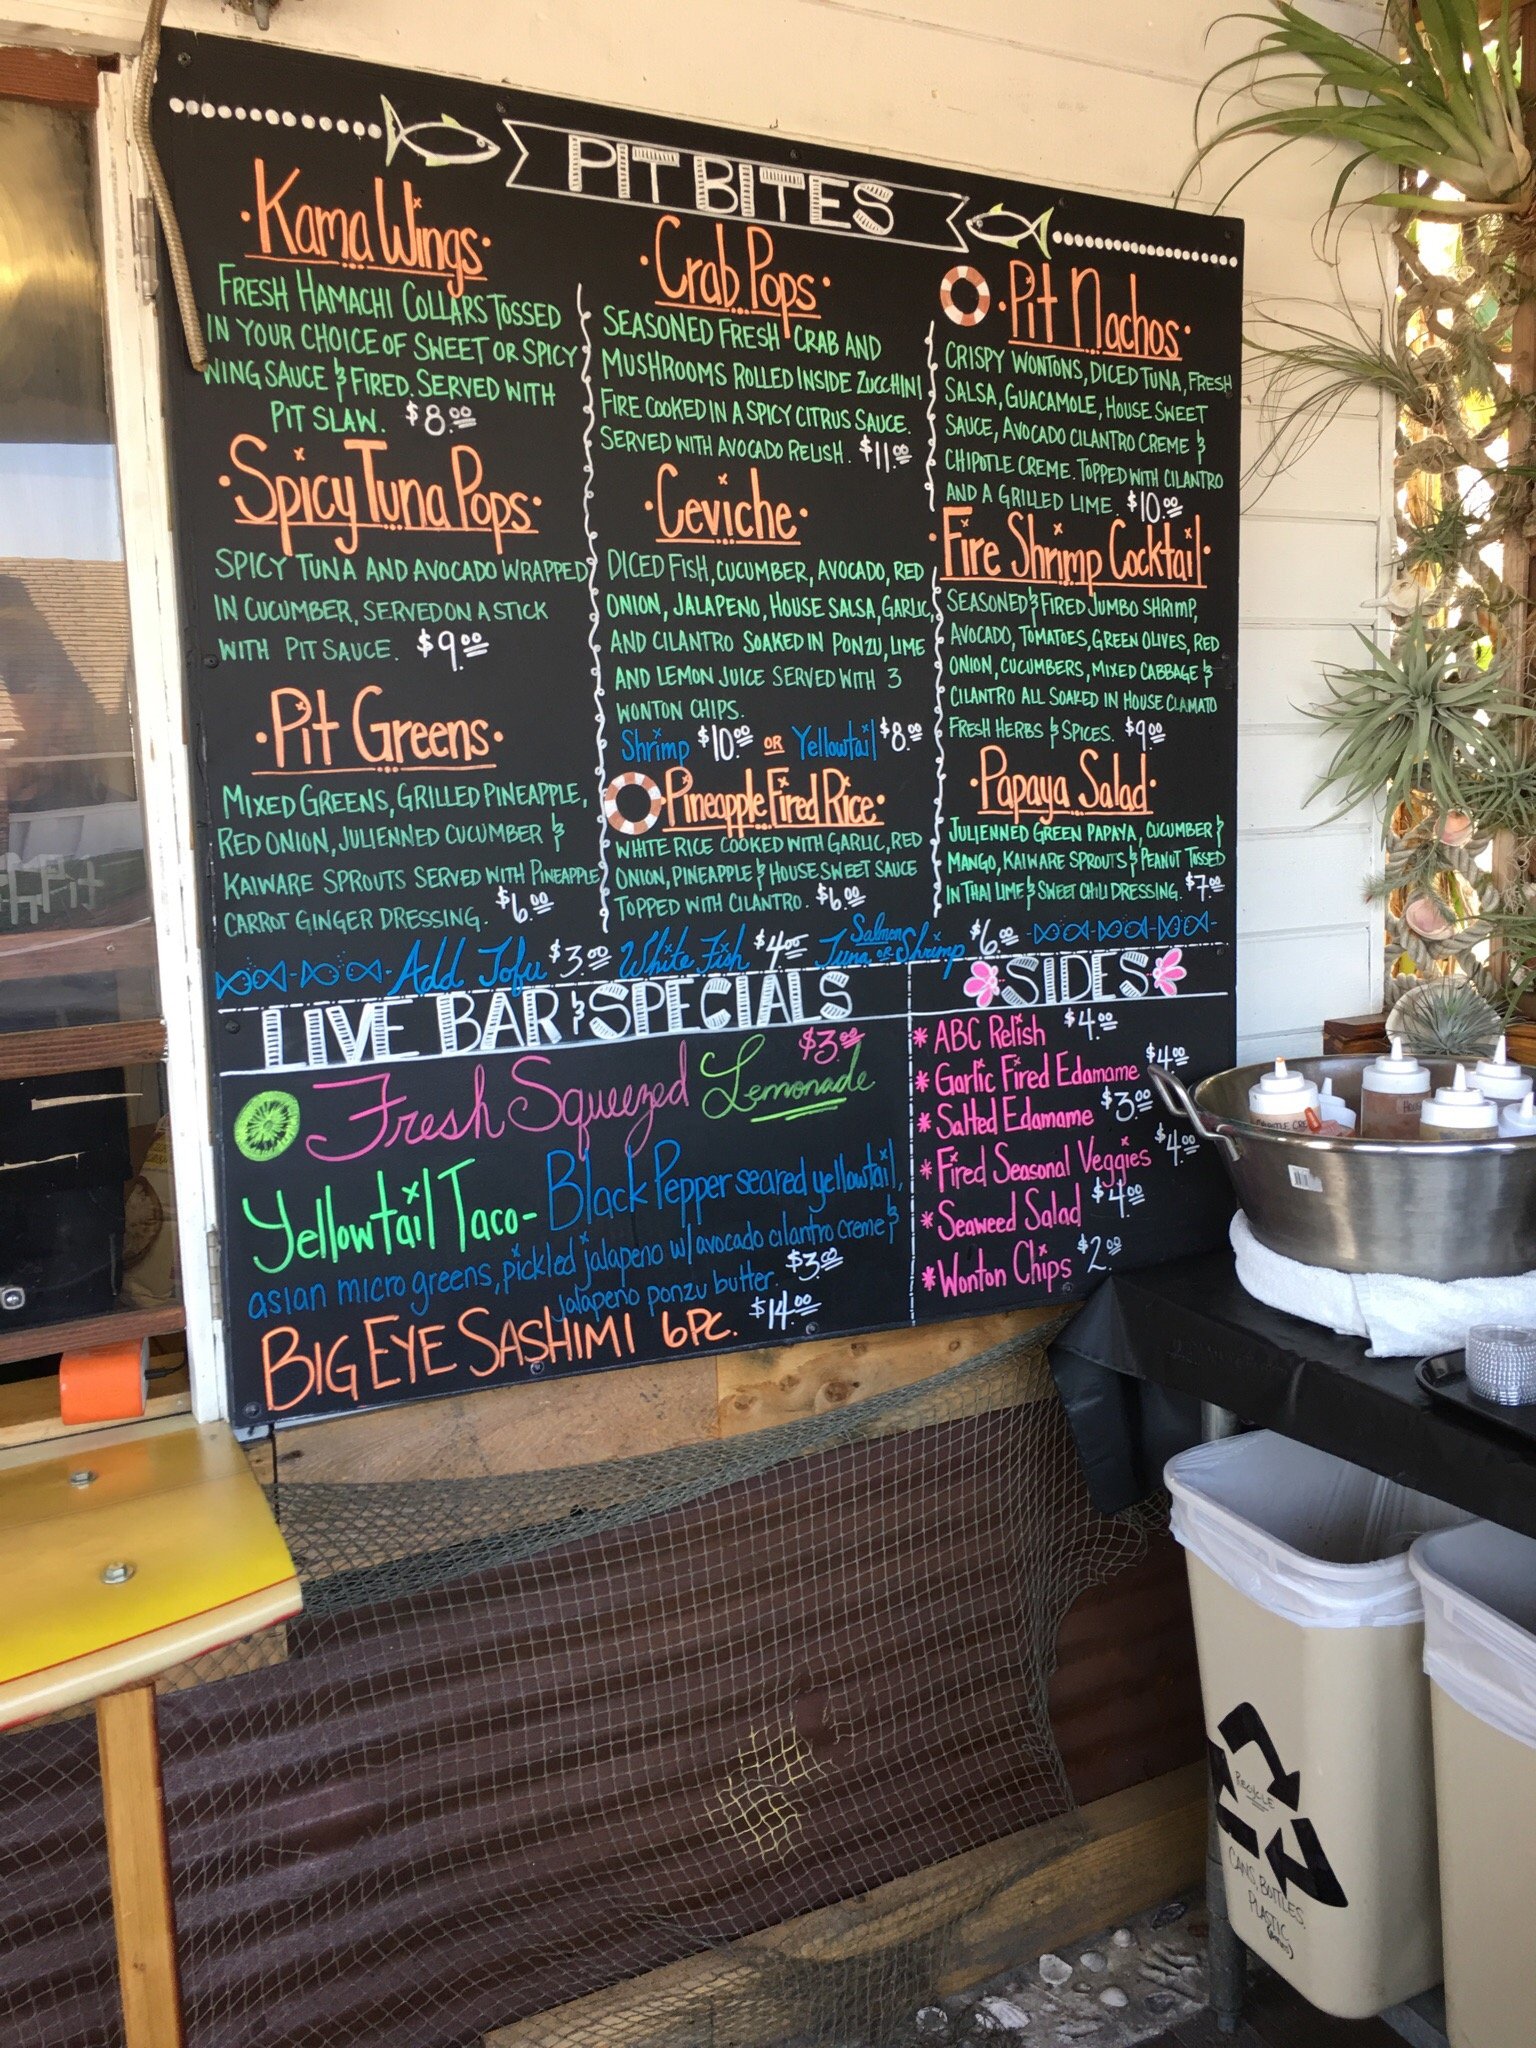 PIT BITES
Kama Wings
FRESH HAMACHI COLLARS TOSSED
IN YOUR CHOICE OF SWEET OR SPICY
WING SAUCE & FIRED. SERVED WITH
PIT SLAW. $8.00
Spicy Tuna Pops
SPICY TUNA AND AVOCADO WRAPPED
IN CUCUMBER, SERVED ON A STICK
WITH PIT SAUCE. $9.00
Pit Greens
MIXED GREENS, GRILLED PINEAPPLE,
RED ONION, JULIENNED CUCUMBER &
KAIWARE SPROUTS SERVED WITH PINEAPPLE
CARROT GINGER DRESSING. $6.00
Crab Pops
SEASONED FRESH CRAB AND
MUSHROOMS ROLLED INSIDE ZUCCHINI
FIRE COOKED IN A SPICY CITRUS SAUCE.
SERVED WITH AVOCADO RELISH. $11.00
Ceviche
DICED FISH, CUCUMBER, AVOCADO, RED
ONION, JALAPENO, HOUSE SALSA, GARLIC,
AND CILANTRO SOAKED IN PONZU, LIME
AND LEMON JUICE SERVED WITH 3
WONTON CHIPS.
Shrimp $10.00 OR Yellowtail $8.00
Pineapple Fired Rice
WHITE RICE COOKED WITH GARLIC, RED
ONION, PINEAPPLE & HOUSE SWEET SAUCE
TOPPED WITH CILANTRO. $6.00
Pit Nachos
CRISPY WONTONS, DICED TUNA, FRESH
SALSA, GUACAMOLE, HOUSE SWEET
SAUCE, AVOCADO CILANTRO CREME &
CHIPOTLE CREME. TOPPED WITH CILANTRO
AND A GRILLED LIME. $10.00
Fire Shrimp Cocktail
SEASONED & FIRED JUMBO SHRIMP,
AVOCADO, TOMATOES, GREEN OLIVES, RED
ONION, CUCUMBERS, MIXED CABBAGE &
CILANTRO ALL SOAKED IN HOUSE CLAMATO
FRESH HERBS & SPICES. $9.00
Papaya Salad
JULIENNED GREEN PAPAYA, CUCUMBER &
MANGO, KAIWARE SPROUTS & PEANUT TOSSED
IN THAI LIME & SWEET CHILI DRESSING. $7.00
Add Tofu $3.00 White Fish $4.00 Salmon Tuna or Shrimp $6.00
LIVE BAR & SPECIALS
Fresh Squeezed Lemonade $3.00
Yellowtail Taco - Black Pepper seared yellowtail,
asian micro greens, pickled jalapeno w/ avocado cilantro creme &
jalapeno ponzu butter. $3.00
BIG EYE SASHIMI 6PC. $14.00
SIDES
* ABC Relish $4.00
* Garlic Fired Edamame $4.00
* Salted Edamame $3.00
* Fired Seasonal Veggies $4.00
* Seaweed Salad $4.00
* Wonton Chips $2.00
RECYCLE
CANS, BOTTLES,
PLASTIC